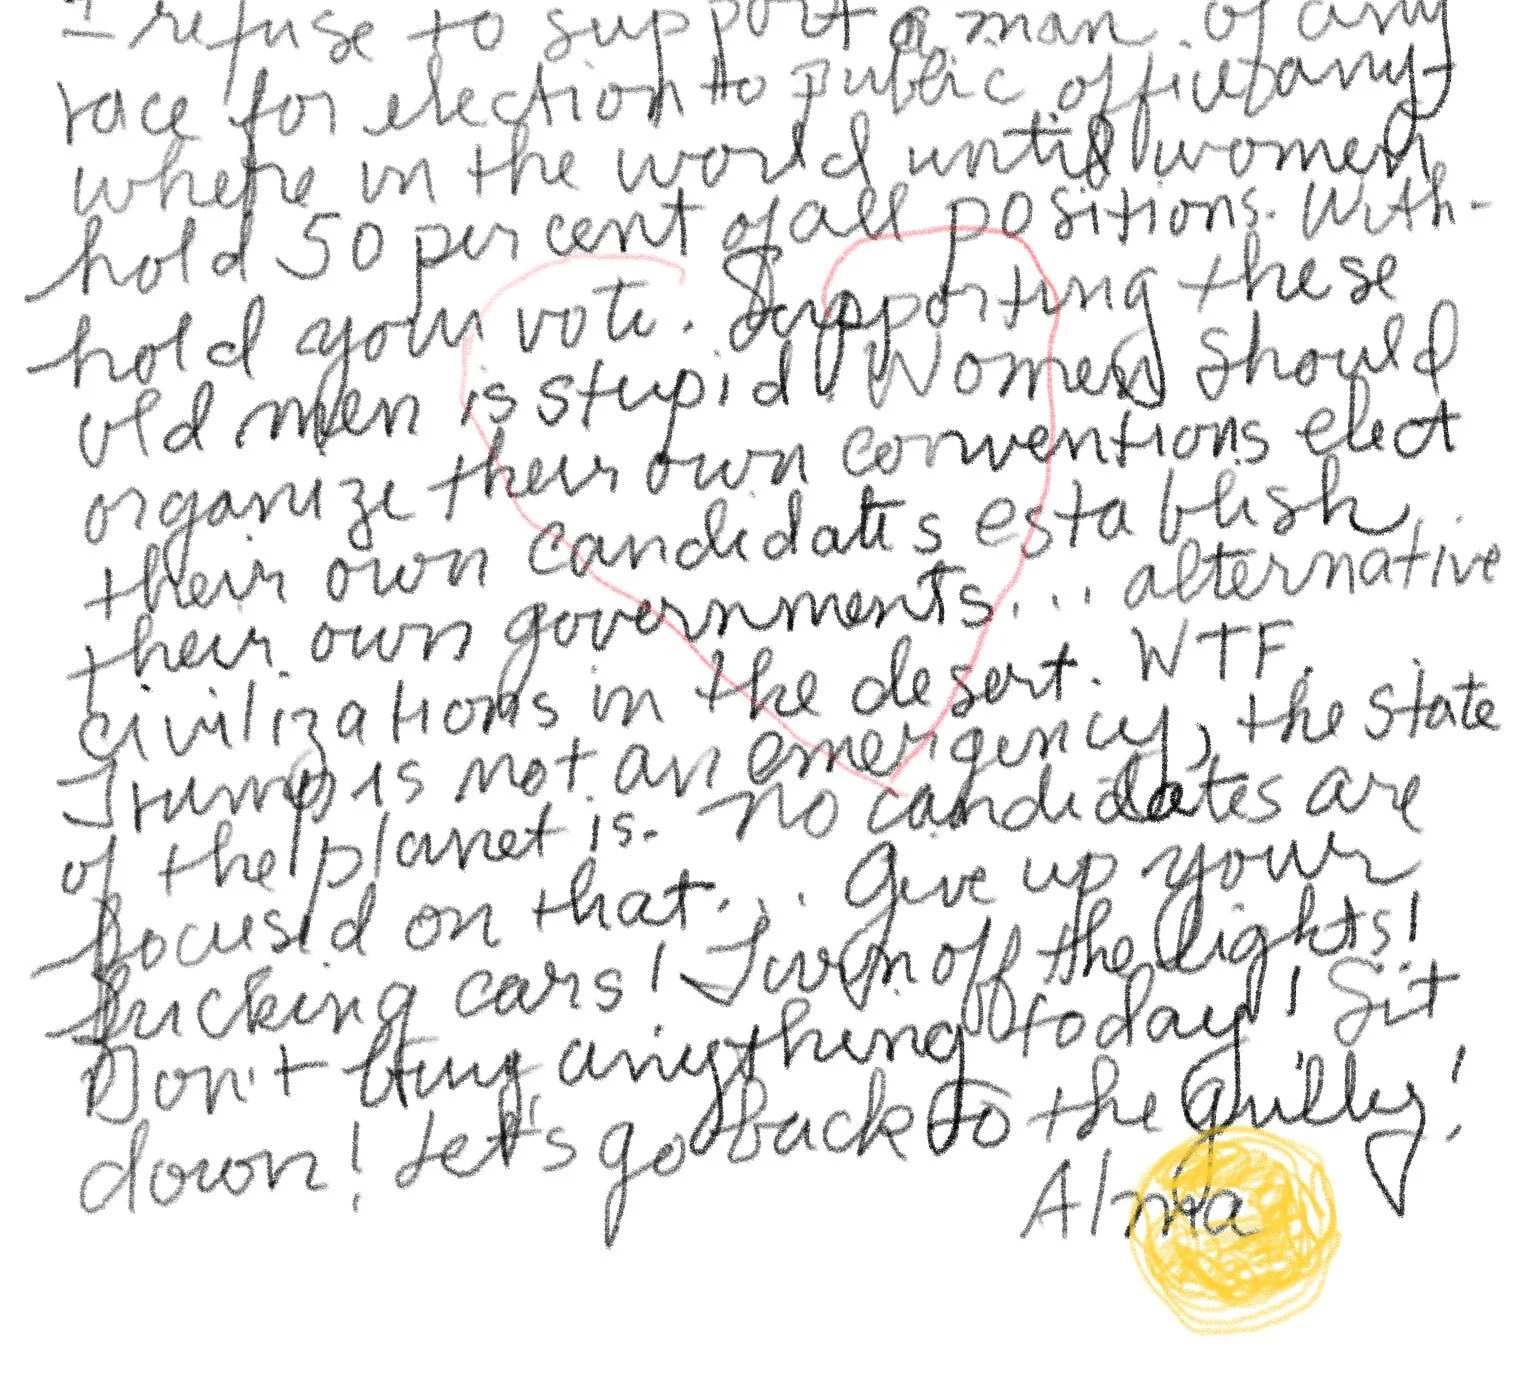 I refuse to support a man of any
race for election to public office any-
where in the world until women
hold 50 per cent of all positions. With-
hold your vote. Supporting these
old men is stupid. Women should
organize their own conventions elect
their own candidates establish
their own governments... alternative
civilizations in the desert. WTF.
Trump is not an emergency, the state
of the planet is. No candidates are
focused on that... Give up your
fucking cars! Turn off the lights!
Don't buy anything today! Sit
down! Let's go back to the
Alma